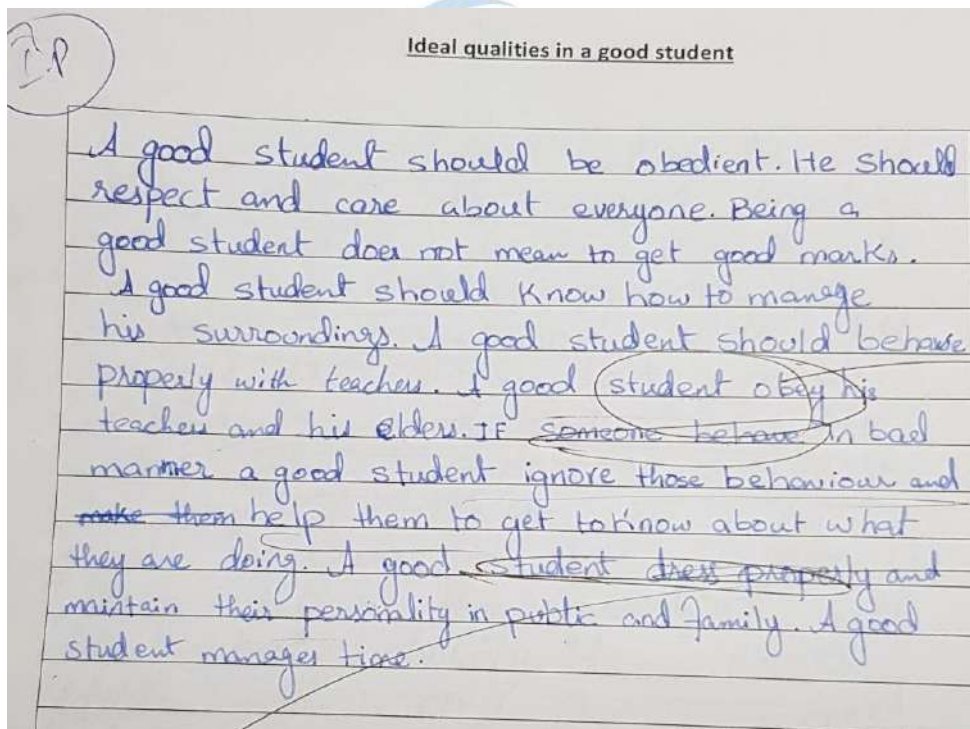 Ideal qualities in a good student
A good student should be obedient. He should
respect and care about everyone. Being a
good student does not mean to get good marks.
A good student should know how to manage
his surroundings. A good student should behave
properly with teachers. A good student obey his
teachers and his elders. IF someone behave in bad
manner a good student ignore those behaviour and
make them help them to get to know about what
they are doing. A good student dress properly and
maintain their personality in public and family. A good
student manages time.